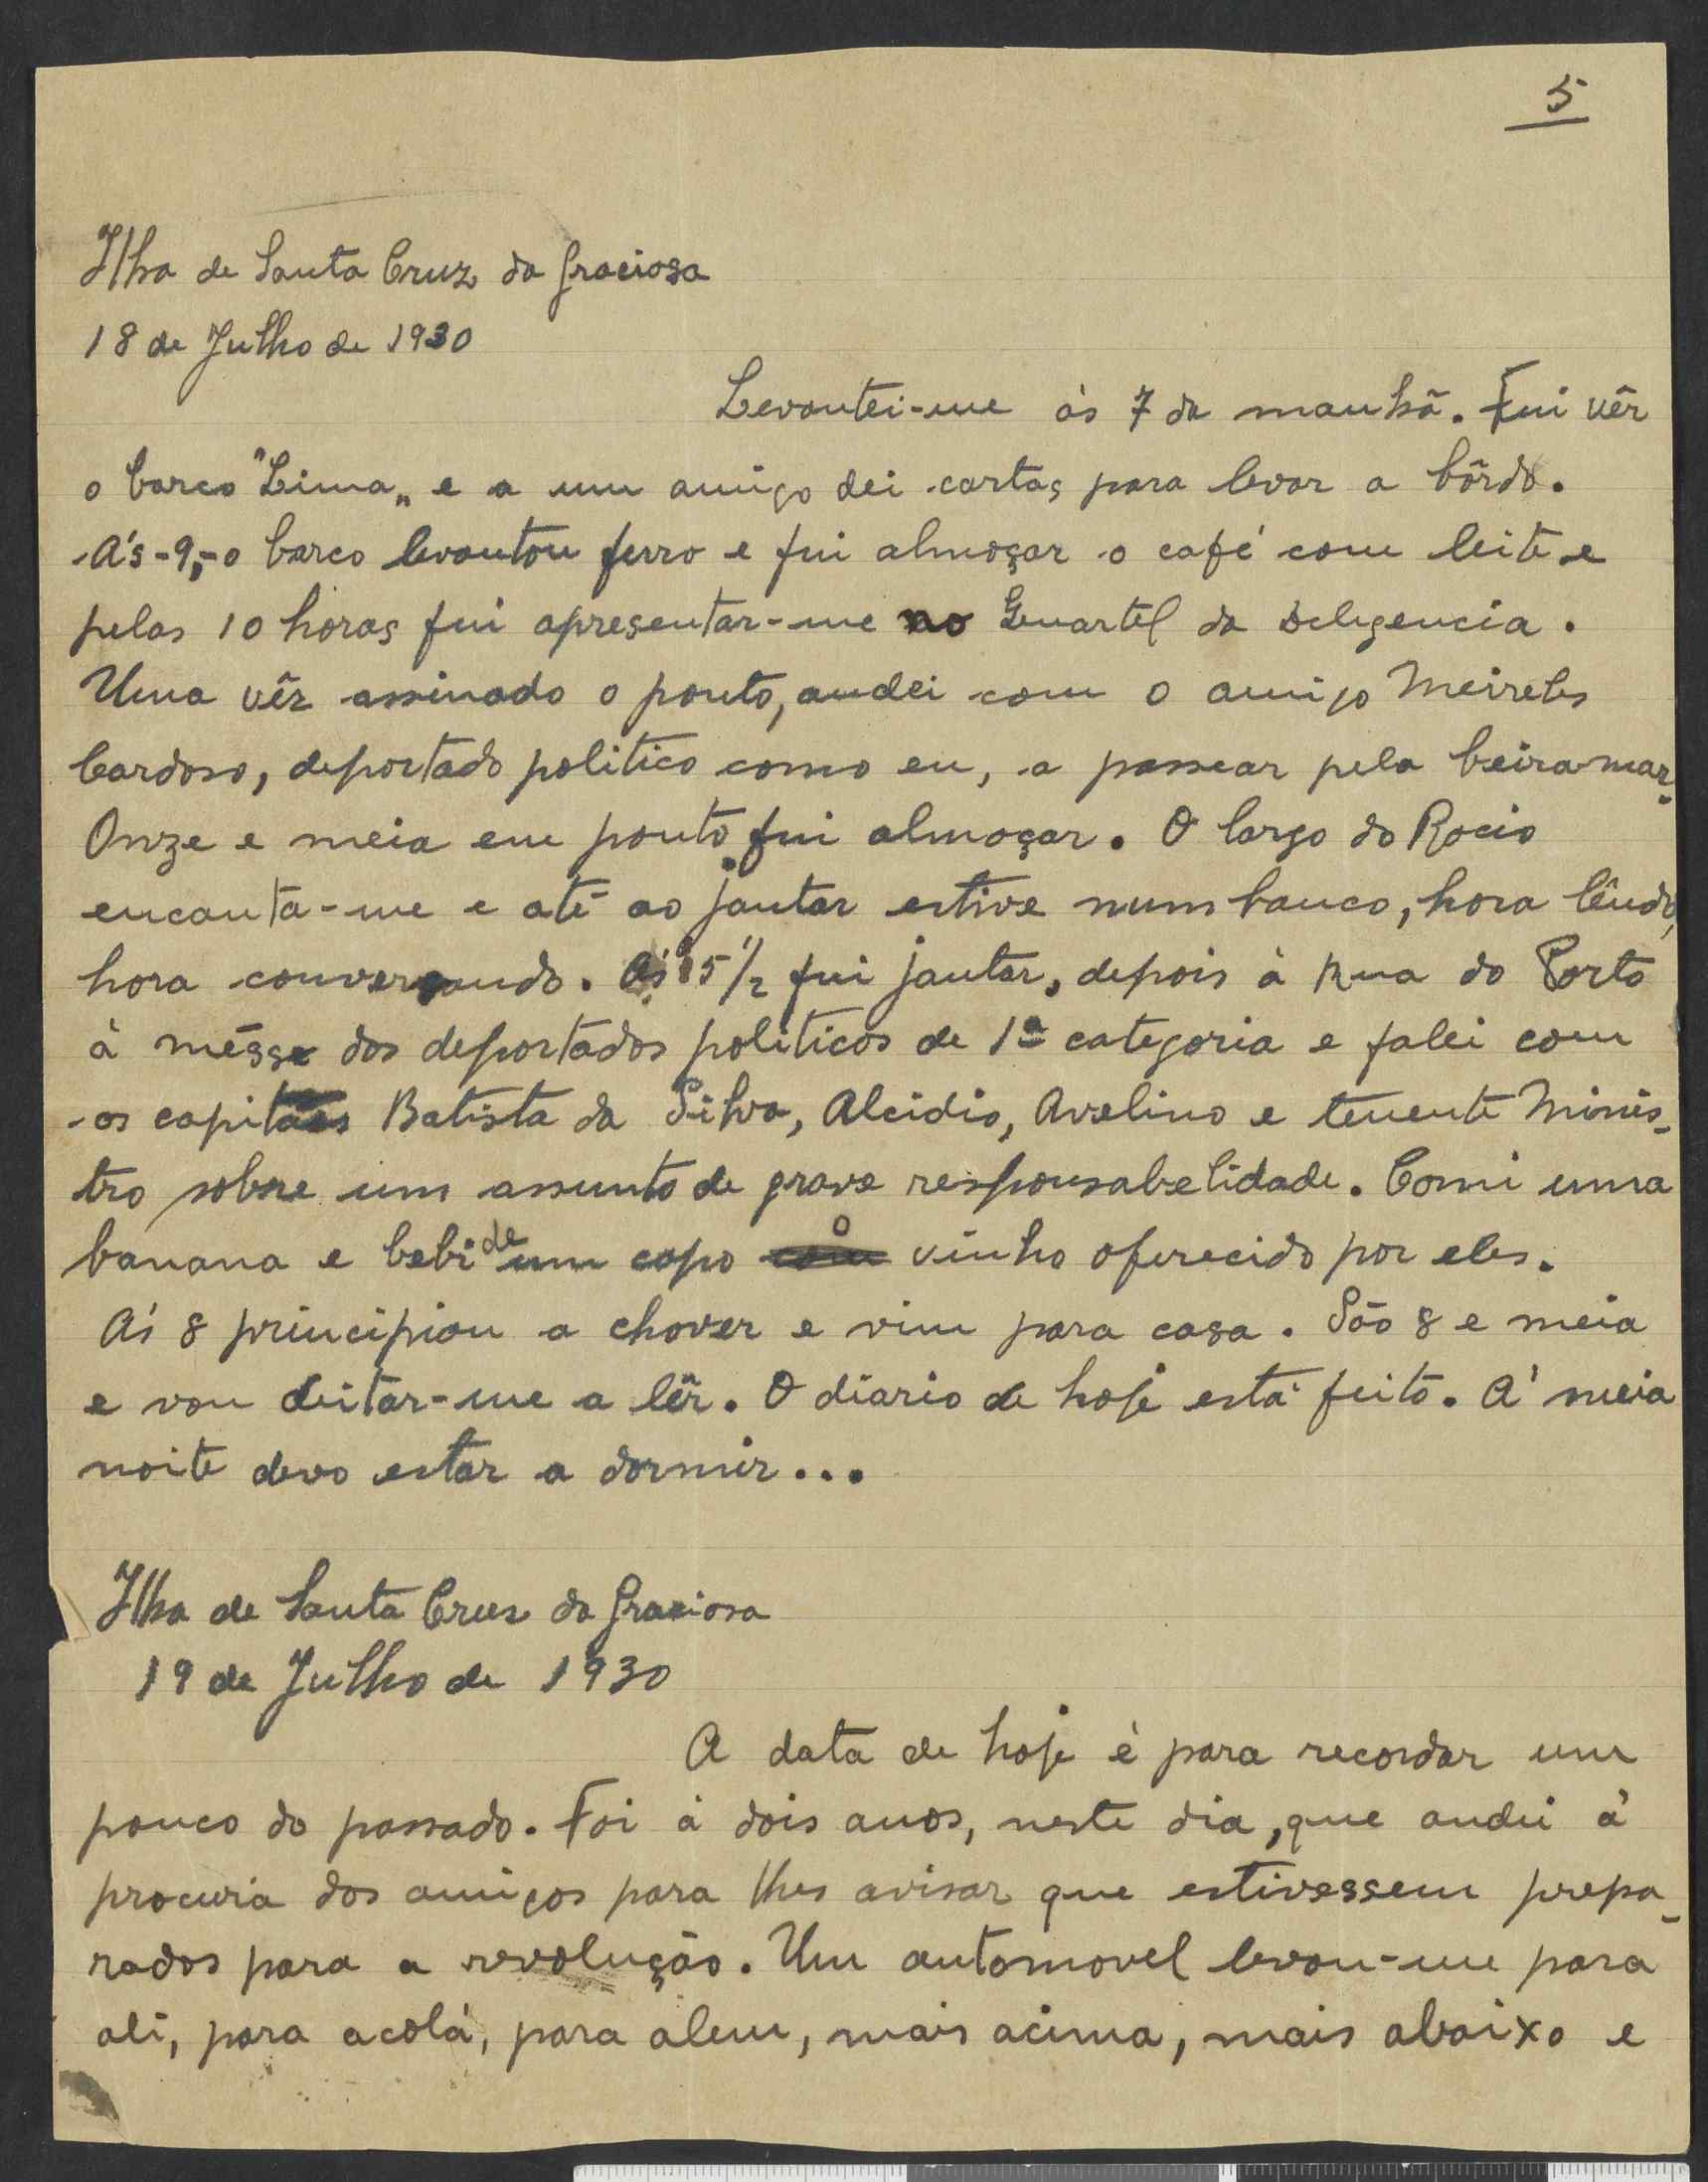 5
Ilha de Santa Cruz da Graciosa
18 de Julho de 1930
Levantei-me ás 7 da manhã. Fui vêr
o barco "Lima„ e a um amigo dei cartas para levar a bôrdo.
A's -9,- o barco levantou ferro e fui almoçar o café com leite e
pelas 10 horas fui apresentar-me no Quartel da Deligencia.
Uma vêz assinado o ponto, andei com o amigo Meireles
Cardoso, deportado politico como eu, a passear pela beira-mar.
Onze e meia em ponto fui almoçar. O largo do Rocio
encanta-me e até ao jantar estive num banco, hora lêndo,
hora conversando. A's 5 1/2 fui jantar, depois à Rua do Porto
à mésse dos deportados politicos de 1ª categoria e falei com
os capitães Batista da Silva, Alcidio, Avelino e tenente Minis-
tro sobre um assunto de grave responsabelidade. Comi uma
banana e bebi de um copo o vinho oferecido por eles.
A's 8 principiou a chover e vim para casa. São 8 e meia
e vou deitar-me a lêr. O diario de hoje está feito. A' meia
noite devo estar a dormir...
Ilha de Santa Cruz da Graciosa
19 de Julho de 1930
A data de hoje é para recordar um
pouco do passado. Foi á dois anos, neste dia, que andei á
procura dos amigos para lhes avisar que estivessem prepa-
rados para a revolução. Um automovel levou-me para
ali, para acolá, para alem, mais acima, mais abaixo e